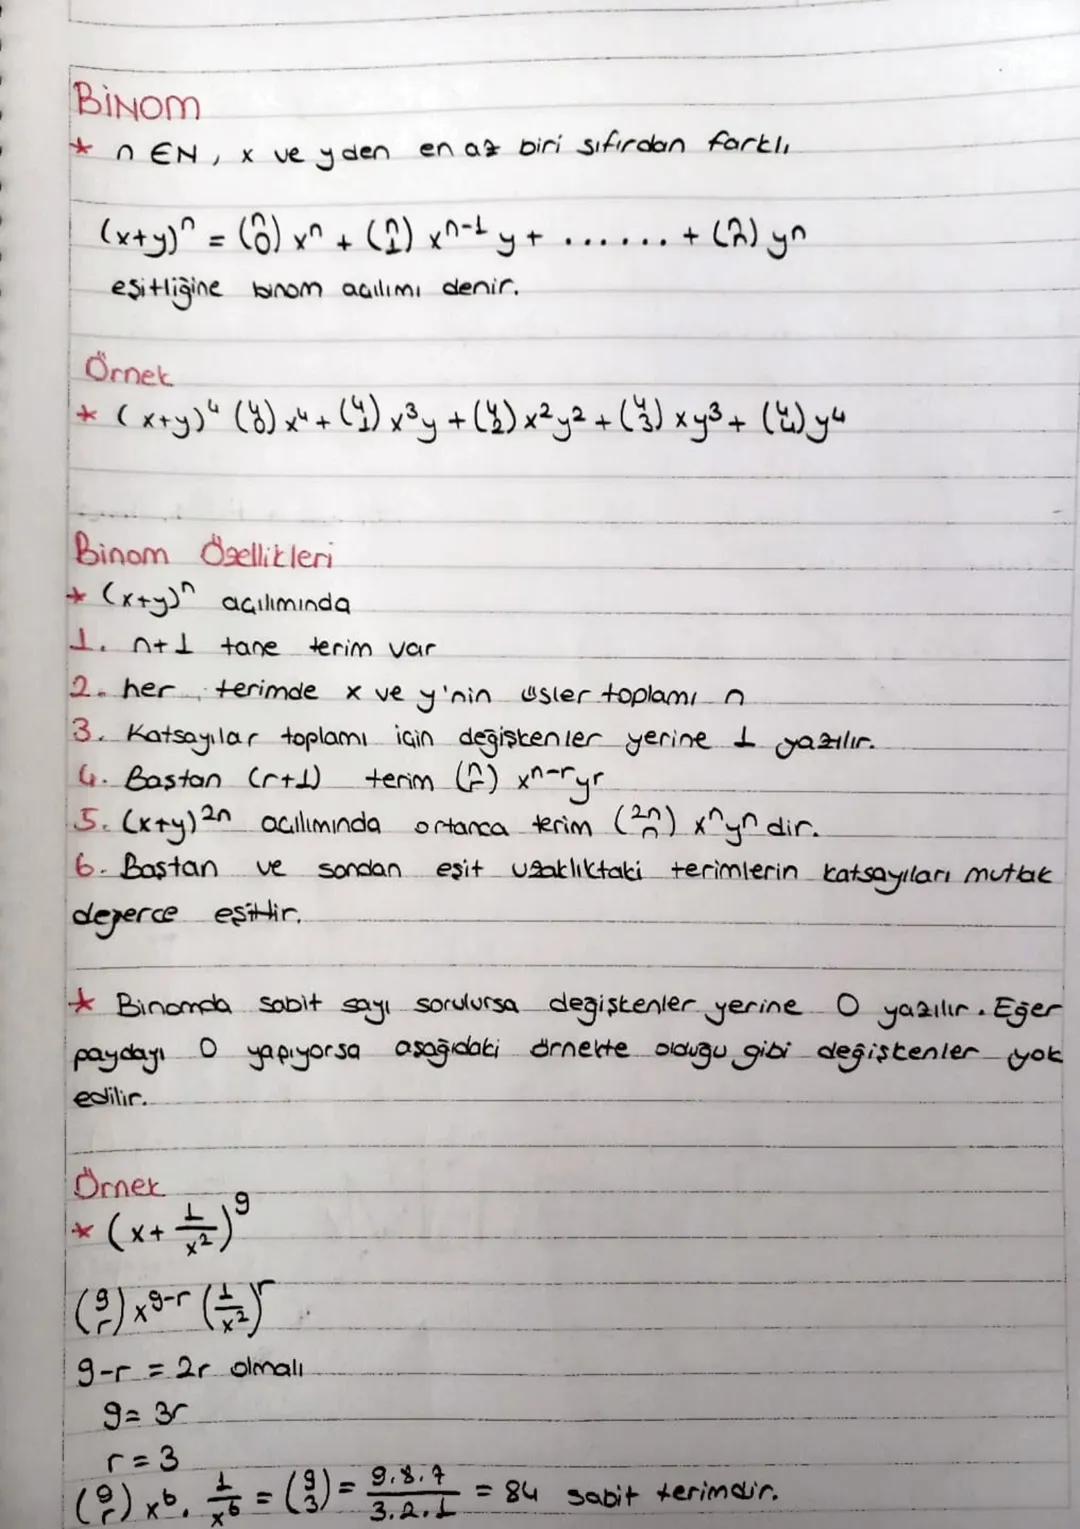 BİNOM
* n ∈ N, x ve y den en az biri sıfırdan farklı
(x+y)ⁿ = (n 0) xⁿ + (n 1) xⁿ⁻¹ y + ...... + (n n) yⁿ
eşitliğine binom açılımı denir.
Örnek
* (x+y)⁴ (4 0) x⁴ + (4 1) x³y + (4 2) x²y² + (4 3) xy³ + (4 4) y⁴
Binom Özellikleri
* (x+y)ⁿ açılımında
1. n+1 tane terim var
2. her terimde x ve y'nin üsler toplamı n
3. Katsayılar toplamı için değişkenler yerine 1 yazılır.
4. Baştan (r+1) terim (n r) xⁿ⁻ʳyʳ
5. (x+y)²ⁿ açılımında ortanca terim (2n n) xⁿyⁿ dir.
6. Baştan ve sondan eşit uzaklıktaki terimlerin katsayıları mutlak
değerce eşittir.
* Binomda sabit sayı sorulursa değişkenler yerine 0 yazılır. Eğer
paydayı 0 yapıyorsa aşağıdaki örnekte olduğu gibi değişkenler yok
edilir.
Örnek
* (x + 1/x²)⁹
(9 r) x⁹⁻ʳ (1/x²)ʳ
9-r = 2r olmalı
9 = 3r
r = 3
(9 r) x⁶ . 1/x⁶ = (9 3) = 9.8.7/3.2.1 = 84 sabit terimdir.